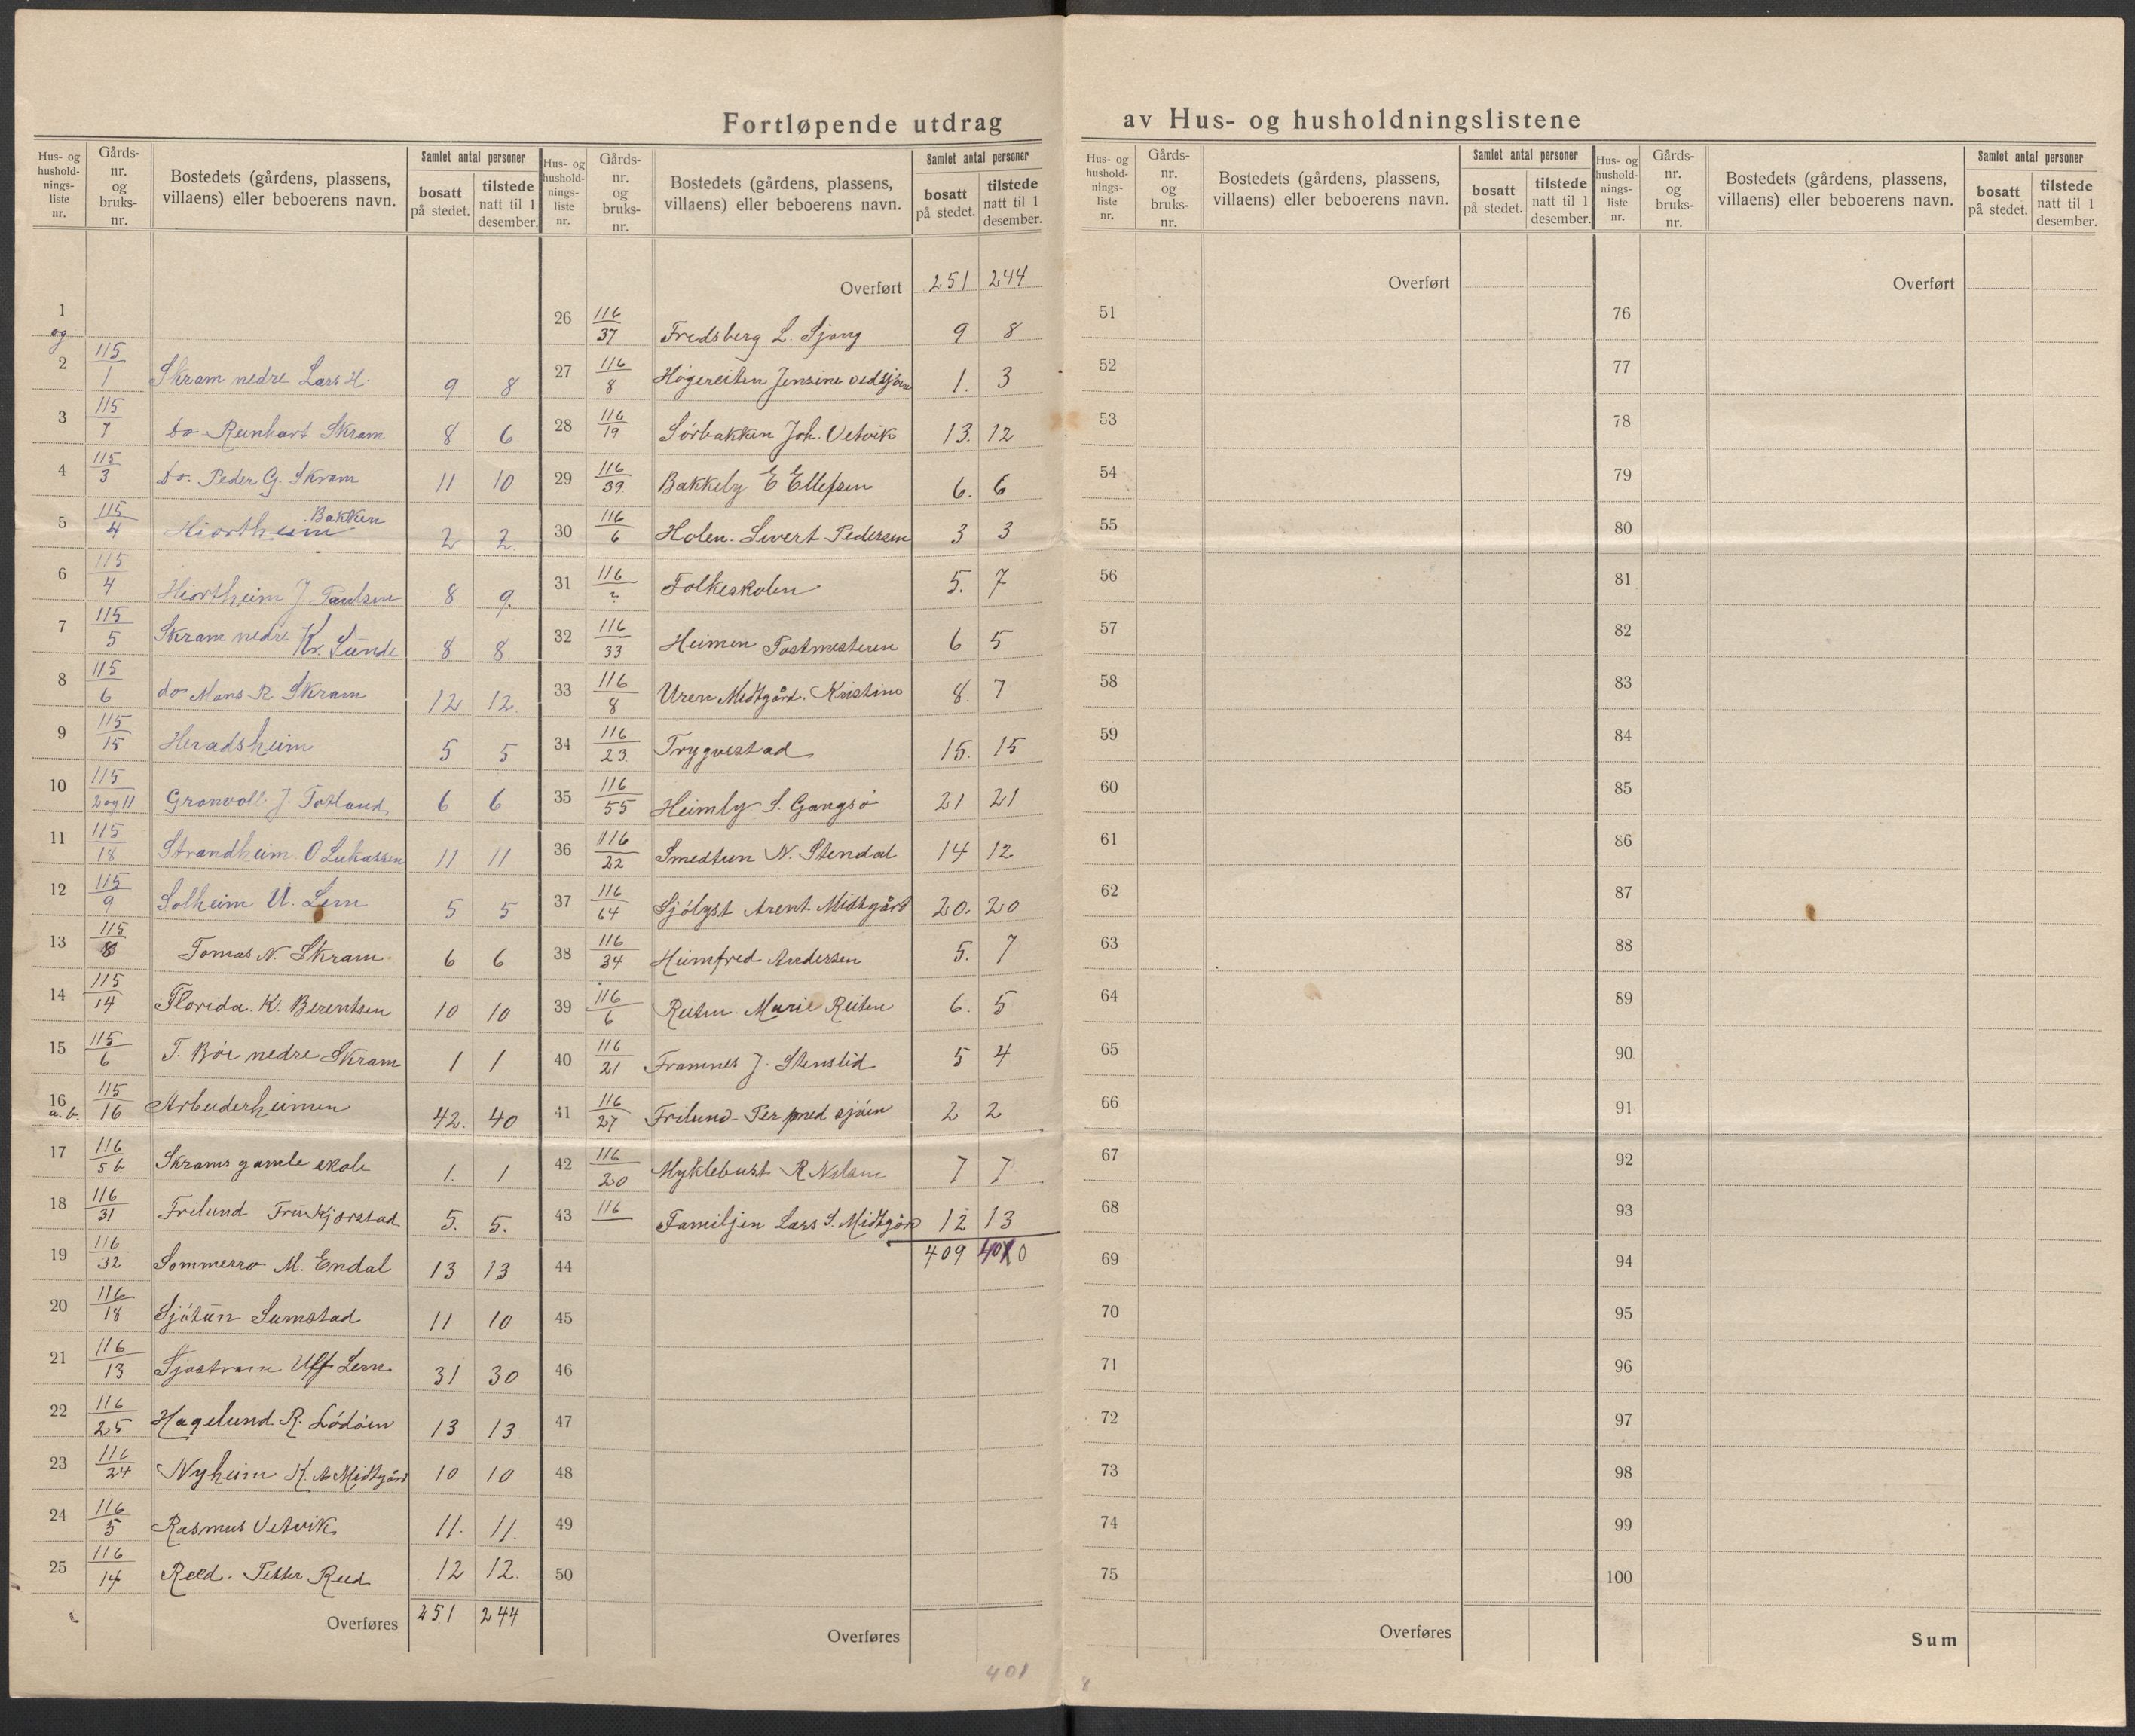 Fortløpende utdrag av Hus- og husholdningslistene
Hus- og hushold-nings-liste nr. | Gårds-nr. og bruks-nr. | Bostedets (gårdens, plassens, villaens) eller beboerens navn. | Samlet antal personer | bosatt på stedet. | tilstede natt til 1 desember.
1 og
2 115/1 Skram nedre Lars H. 9 8
3 115/7 do Reinhart Skram 8 6
4 115/3 do. Peder G. Skram 11 10
5 115/4 Hiortheim Bakken 2 2
6 115/4 Hiortheim J. Paulsen 8 9.
7 115/5 Skram nedre Kr. Sunde 8 8
8 115/6 do Mons R. Skram 12 12.
9 115/15 Heradsheim 5 5
10 115/2 og 11 Gronvoll J. Totland 6 6
11 115/18 Strandheim O Lukassen 11 11
12 115/9 Solheim U. Lem 5 5
13 115/8 Tomas N. Skram 6 6
14 115/14 Florida. K. Berentsen 10 10
15 115/6 T. Böe nedre Skram 1 1
16 a.b. 115/16 Arbeiderheimen 42. 40
17 116/5 b. Skrams gamle skole 1. 1
18 116/31 Frilund Frü Kjørstad 5. 5.
19 116/32 Sommerro M. Endal 13 13
20 116/18 Sjötün Sumstad 11 10
21 116/13 Uff Lem 31 30
22 116/25 Hagelund R. Lödöen 13 13
23 116/24 Nyheim K. A. Midtgård 10 10
24 116/5 Rasmus Vetvik 11. 11.
25 116/14 Reed. Petter Reed 12 12.
Overføres 251 244
Hus- og hushold-nings-liste nr. | Gårds-nr. og bruks-nr. | Bostedets (gårdens, plassens, villaens) eller beboerens navn. | Samlet antal personer | bosatt på stedet. | tilstede natt til 1 desember.
Overført 251 244
26 116/37 Fredsberg L. Sjong 9 8
27 116/8 Högereiten Jensine vedsjöen 1. 3
28 116/19 Sörbakken Joh. Vetvik 13. 12
29 116/39. Bakkely E Ellefsen 6. 6
30 116/6 Holen. Sivert Pedersen 3 3
31 116/? Folkeskolen 5. 7
32 116/33 Heimen Postmesteren 6 5
33 116/8 Uren Midtgård. Kristine 8. 7
34 116/23. Trygvestad 15. 15
35 116/55 Heimly S. Gangsö 21 21
36 116/22 Smedtun N. Stendal 14 12
37 116/64 Sjölyst Arent Midtgård 20. 20
38 116/34 Heimfred Andersen 5. 7
39 116/6 Reiten. Marie Reiten 6. 5
40 116/21 Framnes J. Stenslid 5 4
41 116/27 Frilund - Per med sjöen 2 2
42 116/20 Myklebust R Nilsen 7 7
43 116 Familjen Lars S. Midtgård 12 13
409 4010
44
45
46
47
48
49
50
Overføres
401
Hus- og hushold-nings-liste nr. | Gårds-nr. og bruks-nr. | Bostedets (gårdens, plassens, villaens) eller beboerens navn. | Samlet antal personer | bosatt på stedet. | tilstede natt til 1 desember.
Overført
51
52
53
54
55
56
57
58
59
60
61
62
63
64
65
66
67
68
69
70
71
72
73
74
75
Overføres
8
Hus- og hushold-nings-liste nr. | Gårds-nr. og bruks-nr. | Bostedets (gårdens, plassens, villaens) eller beboerens navn. | Samlet antal personer | bosatt på stedet. | tilstede natt til 1 desember.
Overført
76
77
78
79
80
81
82
83
84
85
86
87
88
89
90
91
92
93
94
95
96
97
98
99
100
Sum